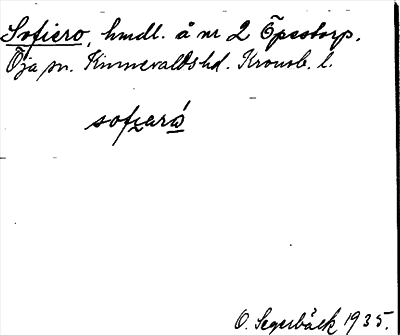 Sofiero, hmdl. å nr 2 Öpestorp.
Öja sn. Kinnevalds hd. Kronob. l.
sofiəró
O. Segerbäck 1935.